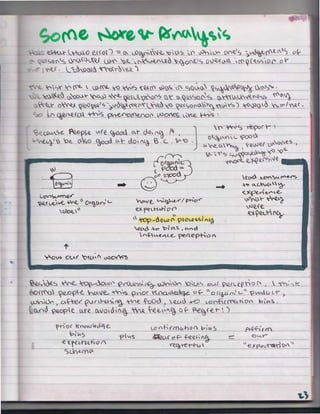 Some Notes & Analysis
Halo effect (Halo error) = a cognitive bias in which one's judgements of
a person's character can be influenced by one's overall impression of
(Edward Thorndike)
The first time I came to this term was in social psychology class.
We talked about how the perception of a person's attractiveness may
affect other people's judgement (Had to personality traits) toward him/her.
So in general this phenomenon works like this:
Because people are good at doing A,
they'd be also good at doing B, C, & D.
In this report:
organic food
= healthy, fewer calories,
more expensive
W
organic
consumer
perceive the "organic
label"
have higher/prior
expectation
"top-down processing"
lead to bias, and
influence perception
organic
food =
good
lead consumers
to actually
experience
what they
were
expecting
↑
How our brain works
Besides the top-down processing which bias our perception, I think
normal people have this prior knowledge of "organic" product,
which, after purchasing the food, lead to confirmation bias.
(and people are avoiding the feeling of Regret!)
prior knowledge
bias
expectation
schema
plus
confirmation bias
fear of feeling
regretful
=
Affirm
our
"expectation"
23